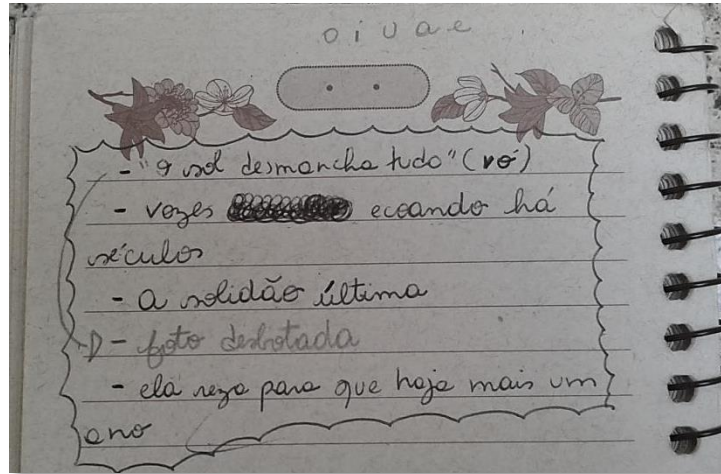 o i u a e
- "o sol desmancha tudo" (vó)
- vozes ecoando há
séculos
- a solidão última
- foto desbotada
- ela reza para que haja mais um
ano